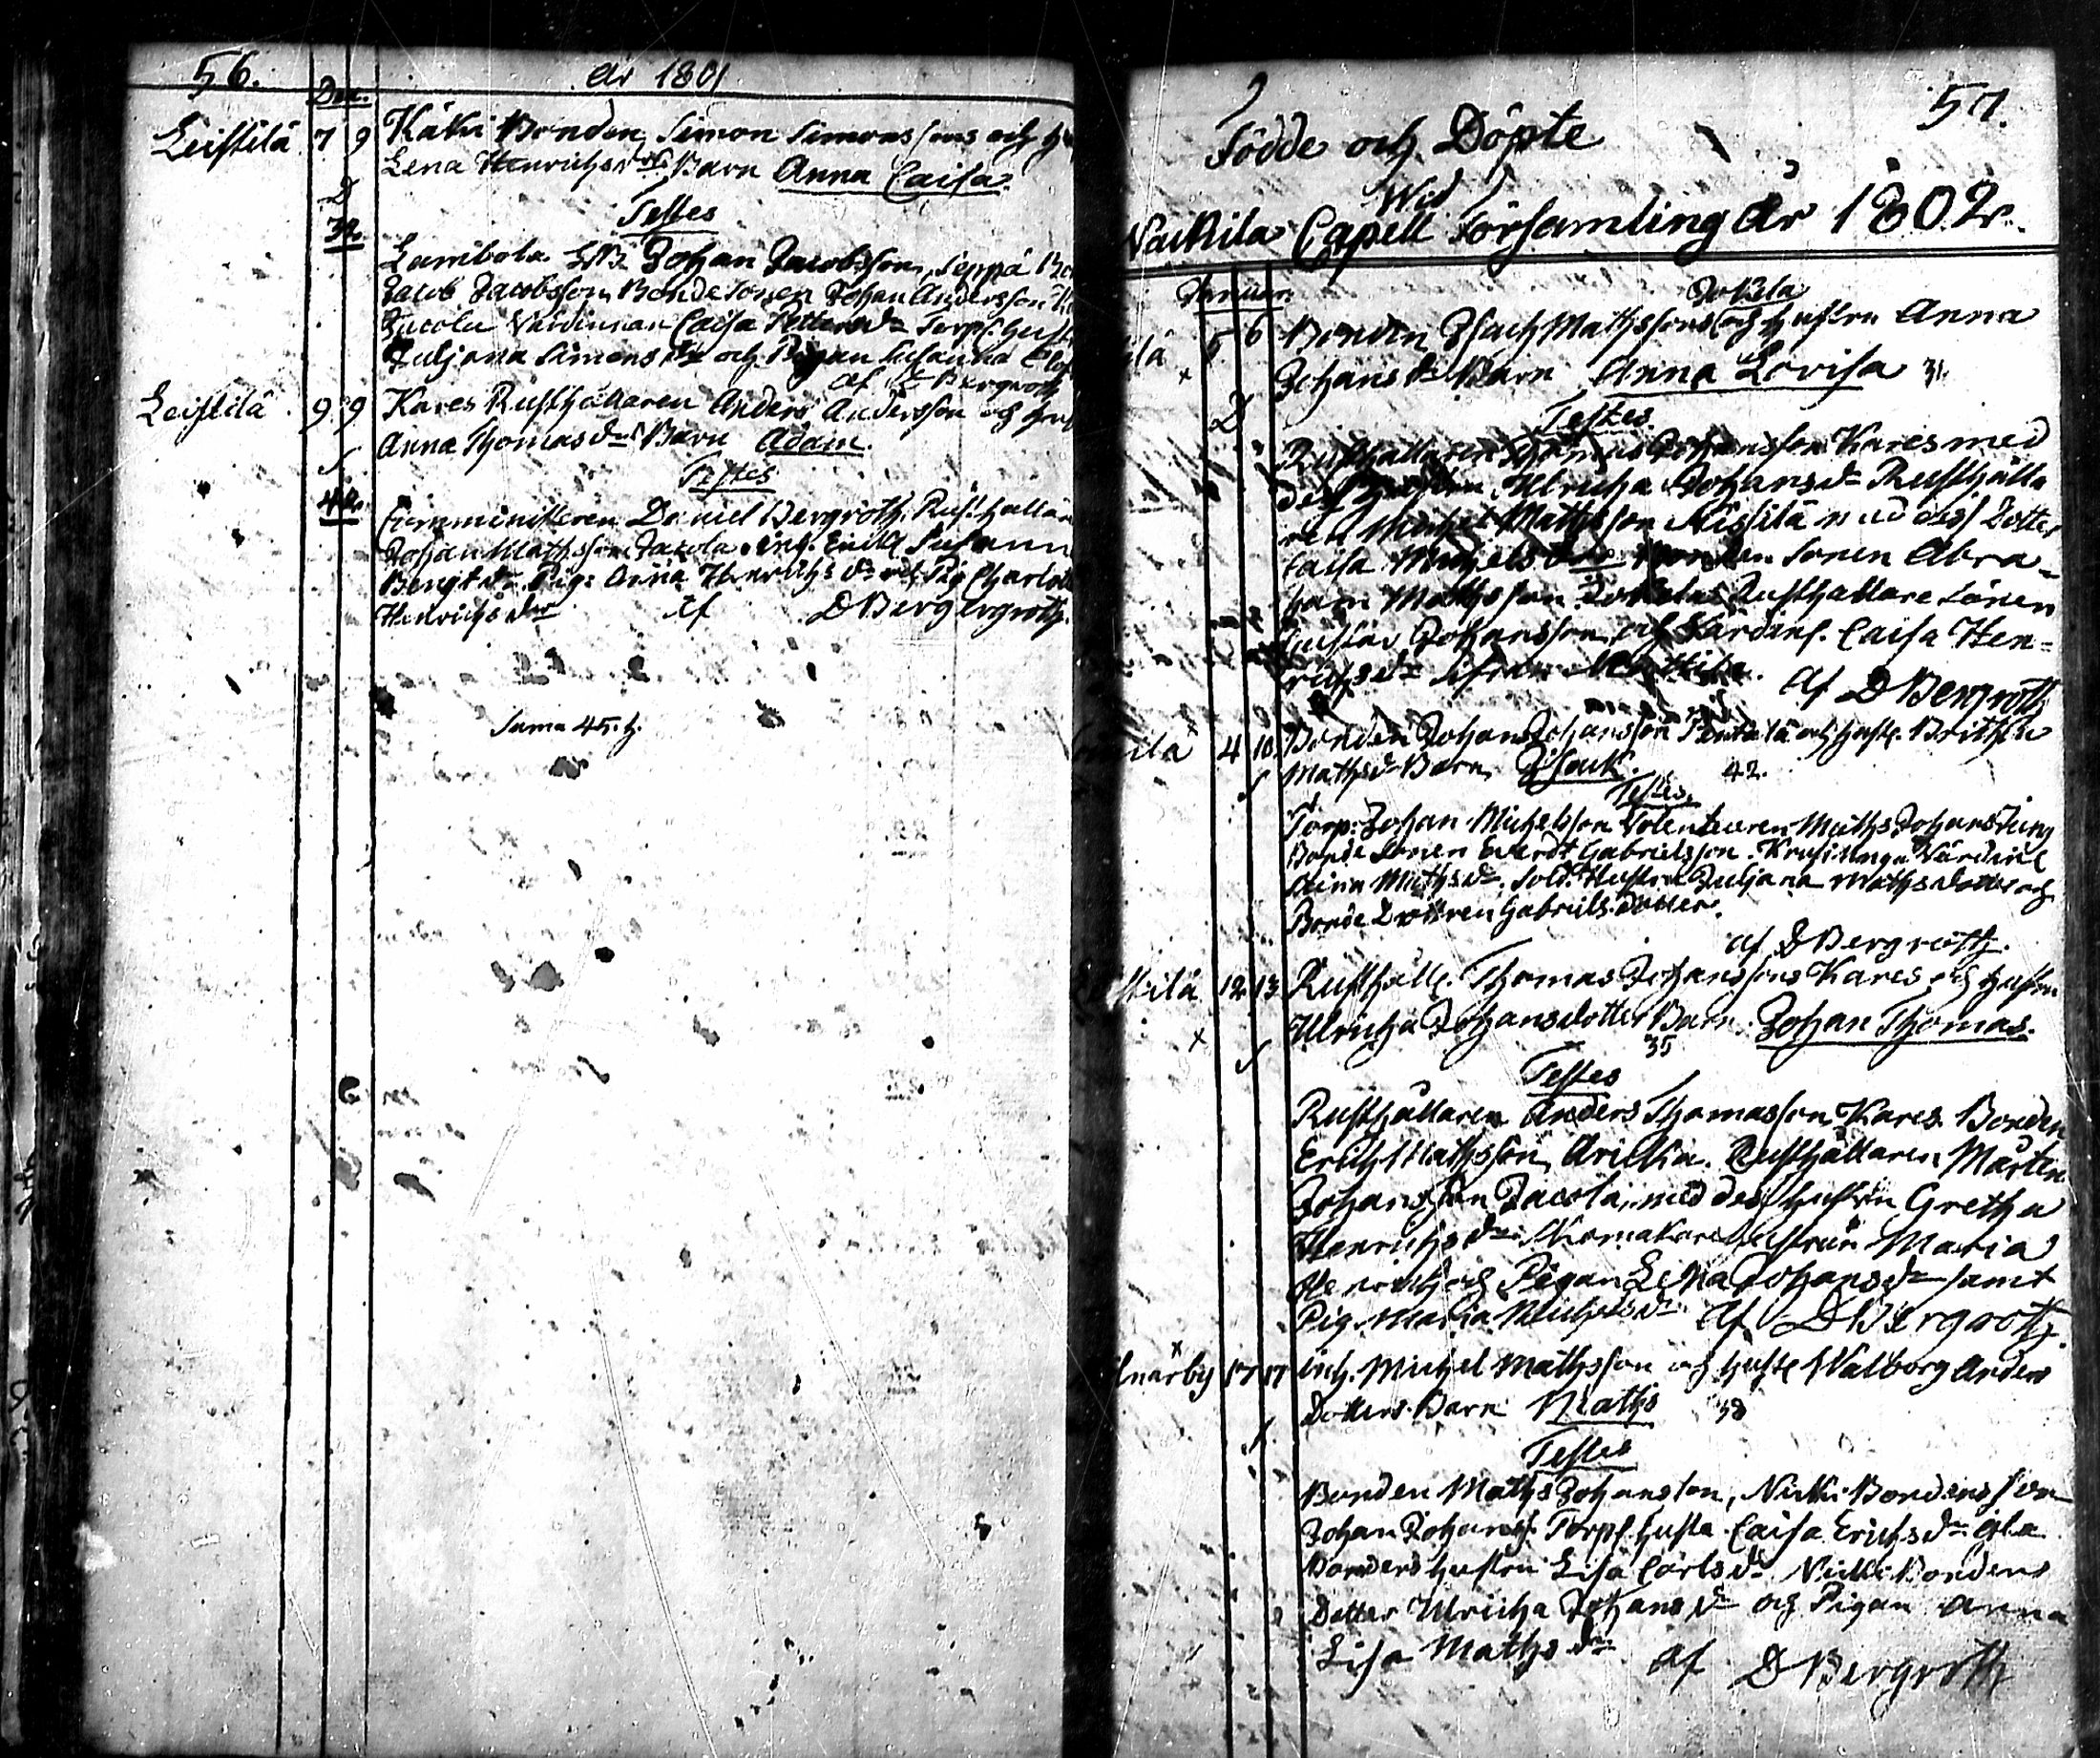 56. År 1801
Dec.
Leistilä 7 9 Käki Bonden Simon Simonssons och
Lena Henrichsd:rs Barn Anna Caisa.
D
32.
Testes
Johan Jacobsson, Seppä
Jacob Jacobsson, Bondesonen Johan Andersson
Jacola Värdinnan Caisa Pettersd:r Torp. Hust
Juljana Simonsd:r och Pigan Susanna
af D Bergroth
Leistilä 9. 9 Kares Rusthållaren Anders Andersson och
Anna Thomasd:rs Barn Adam.
S
Testes
42.
Comministeren Daniel Bergroth, Rusthållar
Johan Mathsson Jacola, Susann
Bengtsd:r Pig: Anna Henrichsd:r och Pig Charlot
Henrichsd:r af D Bergergroth.
Suma 45. h.
57.
Födde och Döpte
Wid
Nackila Capell Församling år 1802.
Januar.
Jokila
lä 5 6 Bonden Isach Mathssons och hustru Anna
x
Johansd:rs Barn Anna Lovisa 31.
D
Testes.
Rusthållaren Thomas Johansson Kares med
dess hustru Ulricha Johansd:r Rusthålla
ren Michel Mathsson med dess Dotter
Caisa Michelsd:r Bonden Sonen Abra-
ham Mathsson Rusthållare Sonen
Gustav Johansson och Värdinf. Caisa Hen-
richsd:r ifrån
af D Bergroth
ila 4 10. Bonden Johan Johansson Penttilä och hust. Britha
Mathsd:rs Barn, Isack. 42.
S
Testes.
Torp. Johan Michelsson Volenteuren Maths Johans Ljung
Bonde Sonen Everdt Gabrielsson. Värdin
Stina Mathsd:r. Sold. Hustru Juljana Mathsdotter och
Bonde Dottren Gabriels dotter.
af D Bergroth.
stilä 12 13 Rusthåll. Thomas Johanssons Kares och hustru
x
Ulricha Johansdotters Barn. Johan Thomas.
S 35
Testes
Rusthållaren Anders Thomasson Kares. Bonden
Erich Mathsson, Arikka. Rusthållaren Mårten
Johansson Jacola, med dess hustru Gretha
Henrichsd:r Skomakare hustrun Maria
och Pigan Lena Johansd:r samt
Pig. Maria Michelsd:r af D Bergroth
x
närby 17 17 inh. Michel Mathsson och hust Walborg Anders
Dotters Barn Maths 38
S
Testes
Bonden Maths Johansson, Nikki Bondens son
Johan Johanss. Torp. husta. Caisa Erichsd:r Ala
Bondens hustru Lisa Carlsd:r Nikki Bondens
Dotter Ulricha Johansd:r och Pigan Anna
Lisa Mathsd:r af D Bergroth